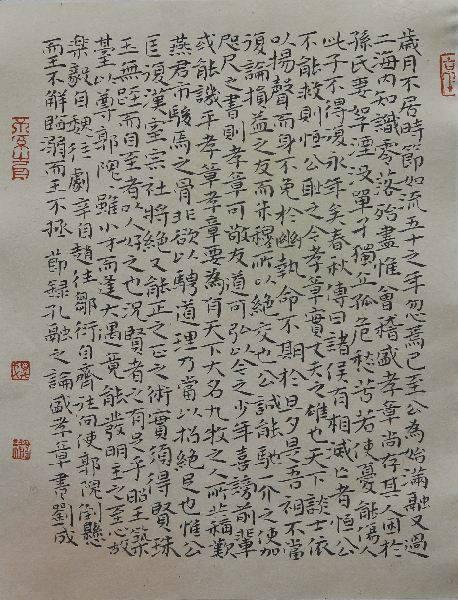 歲月不居時節如流五十之年忽焉已至公為始滿融又過
二海內知識零落殆盡惟會稽盛孝章尚存其人困於
孫氏妻孥湮沒單孑獨立孤危愁苦若使憂能傷人
此子不得復永年矣春秋傳曰諸侯有相滅亡者恒公
不能救則恒公恥之今孝章實丈夫之雄也天下談士依
以揚聲而身不免於幽執命不期於旦夕是吾祖不當
復論損益之友而朱穆所以絕交也公誠能馳一介之使加
咫尺之書則孝章可致友道可弘以今之少年喜謗前輩
或能譏平孝章孝章要為有天下大名九牧之人所共稱歎
燕君市駿馬之骨非欲以騁道理乃當以招絕足也惟公
匡復漢室宗社將絕又能正之正之之術實須得賢珠
玉無脛而自至者以人好之也況賢者之有足乎昭王築
臺以尊郭隗隗雖小才而逢大遇竟能發明主之至心故
樂毅自魏往劇辛自趙往鄒衍自齊往向使郭隗倒懸
而王不解臨溺而王不拯 節錄孔融之論盛孝章書 劉成